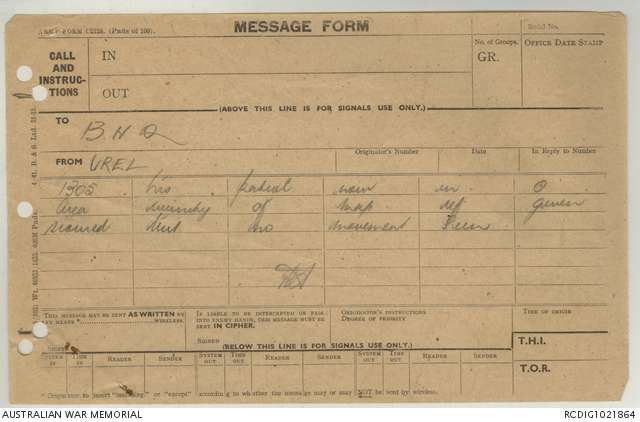 ARMY FORM C2128. (Pads of 100).
MESSAGE FORM
Serial No.
CALL AND INSTRUCTIONS
IN
OUT
No. of Groups.
GR.
OFFICE DATE STAMP
(ABOVE THIS LINE IS FOR SIGNALS USE ONLY.)
TO
BHQ
FROM
UREL
Originator's Number
Date
In Reply to Number
1305 his patrol now in O
Area of map ref given
scoured but no movement seen
THIS MESSAGE MAY BE SENT AS WRITTEN BY ANY MEANS * WIRELESS.
IF LIABLE TO BE INTERCEPTED OR FALL INTO ENEMY HANDS, THIS MESSAGE MUST BE SENT IN CIPHER.
ORIGINATOR'S INSTRUCTIONS
DEGREE OF PRIORITY
TIME OF ORIGIN
SIGNED
SIGNED
(BELOW THIS LINE IS FOR SIGNALS USE ONLY.)
T.H.I.
SYSTEM IN TIME IN READER SENDER SYSTEM OUT TIME OUT READER SENDER SYSTEM OUT TIME OUT READER SENDER
T.O.R.
* Originator to insert "including" or "except" according to whether the message may or may NOT be sent by wireless.
AUSTRALIAN WAR MEMORIAL
RCDIG1021864